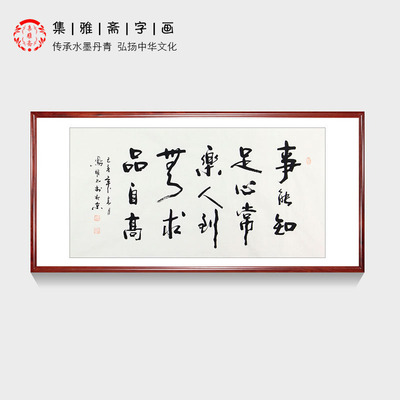 集|雅|斋|字|画
传承水墨丹青 弘扬中华文化
事能知
足心常
樂人到
無求
品自高